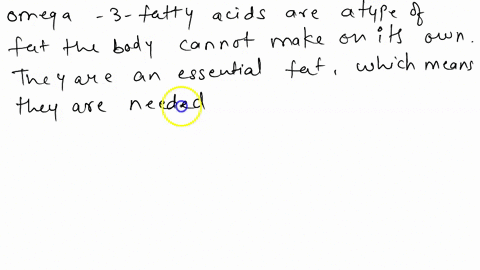 omega -3-fatty acids are a type of
fat the body cannot make on its own.
They are an essential fat, which means
they are needed